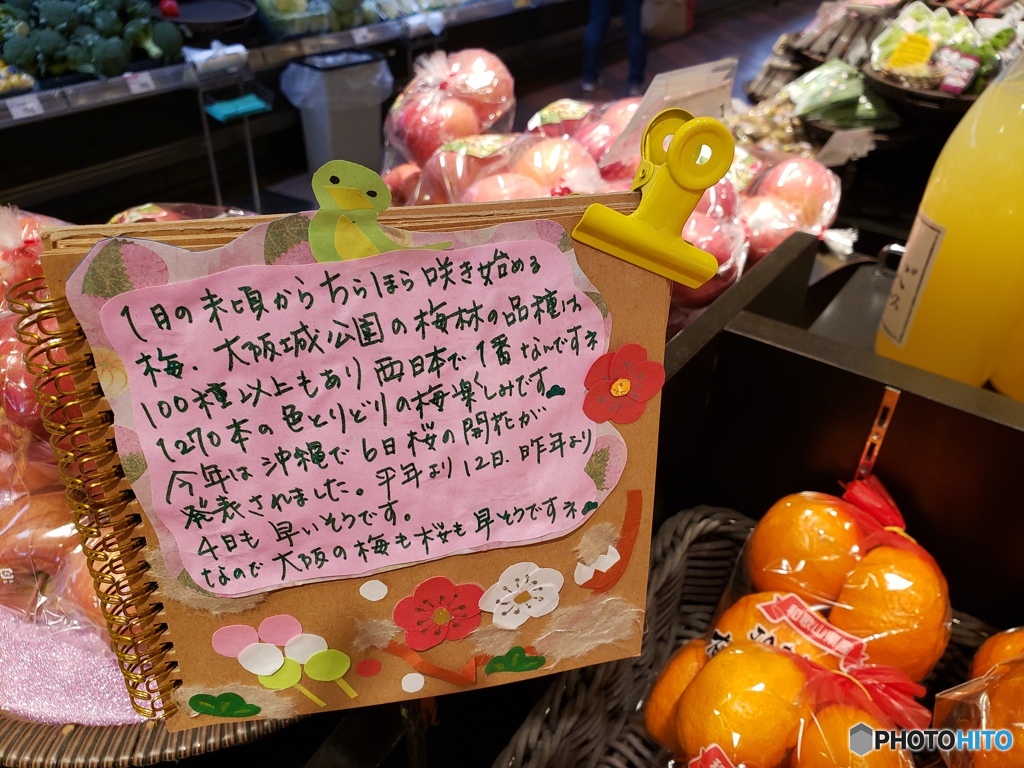 1月の末頃からちらほら咲き始める
梅、大阪城公園の梅林の品種は
100種以上もあり西日本で1番なんですネ
1270本の色とりどりの梅楽しみです
今年は沖縄で6日桜の開花が
発表されました。平年より12日、昨年より
4日も早いそうです。
なので大阪の梅も桜も早そうですネ
和歌山県産
PHOTOHITO